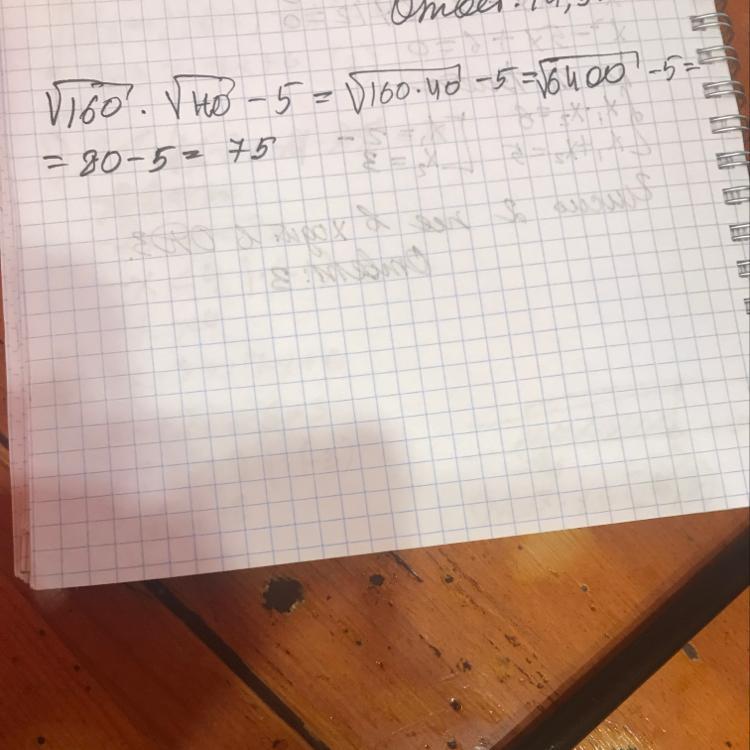 Ответ: 14,5
√160 · √40 - 5 = √160·40 - 5 = √6400 - 5 =
= 80 - 5 = 75